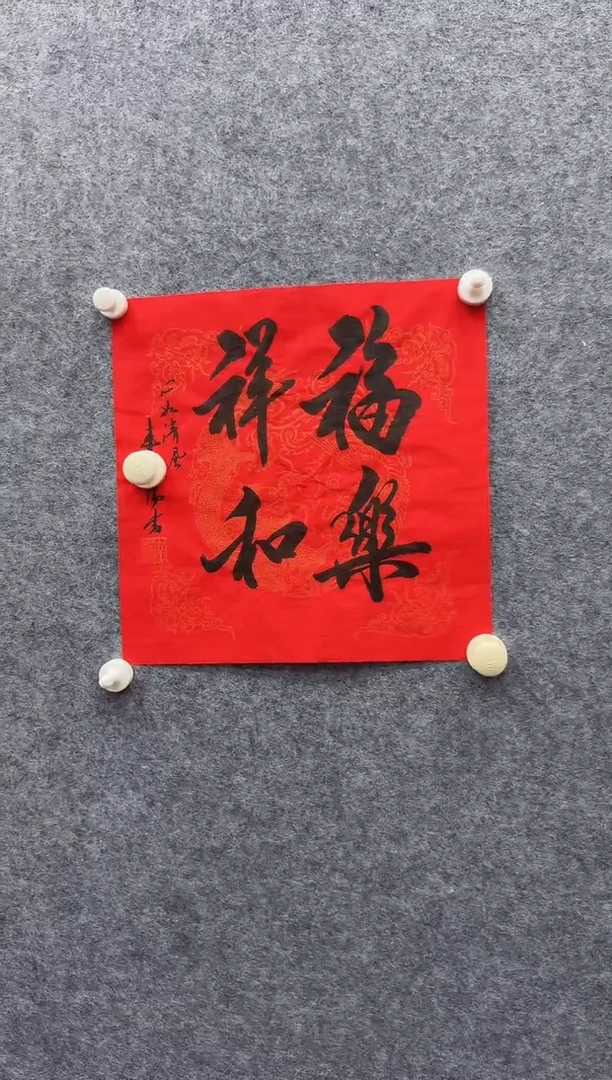 福樂
祥和
清風
書